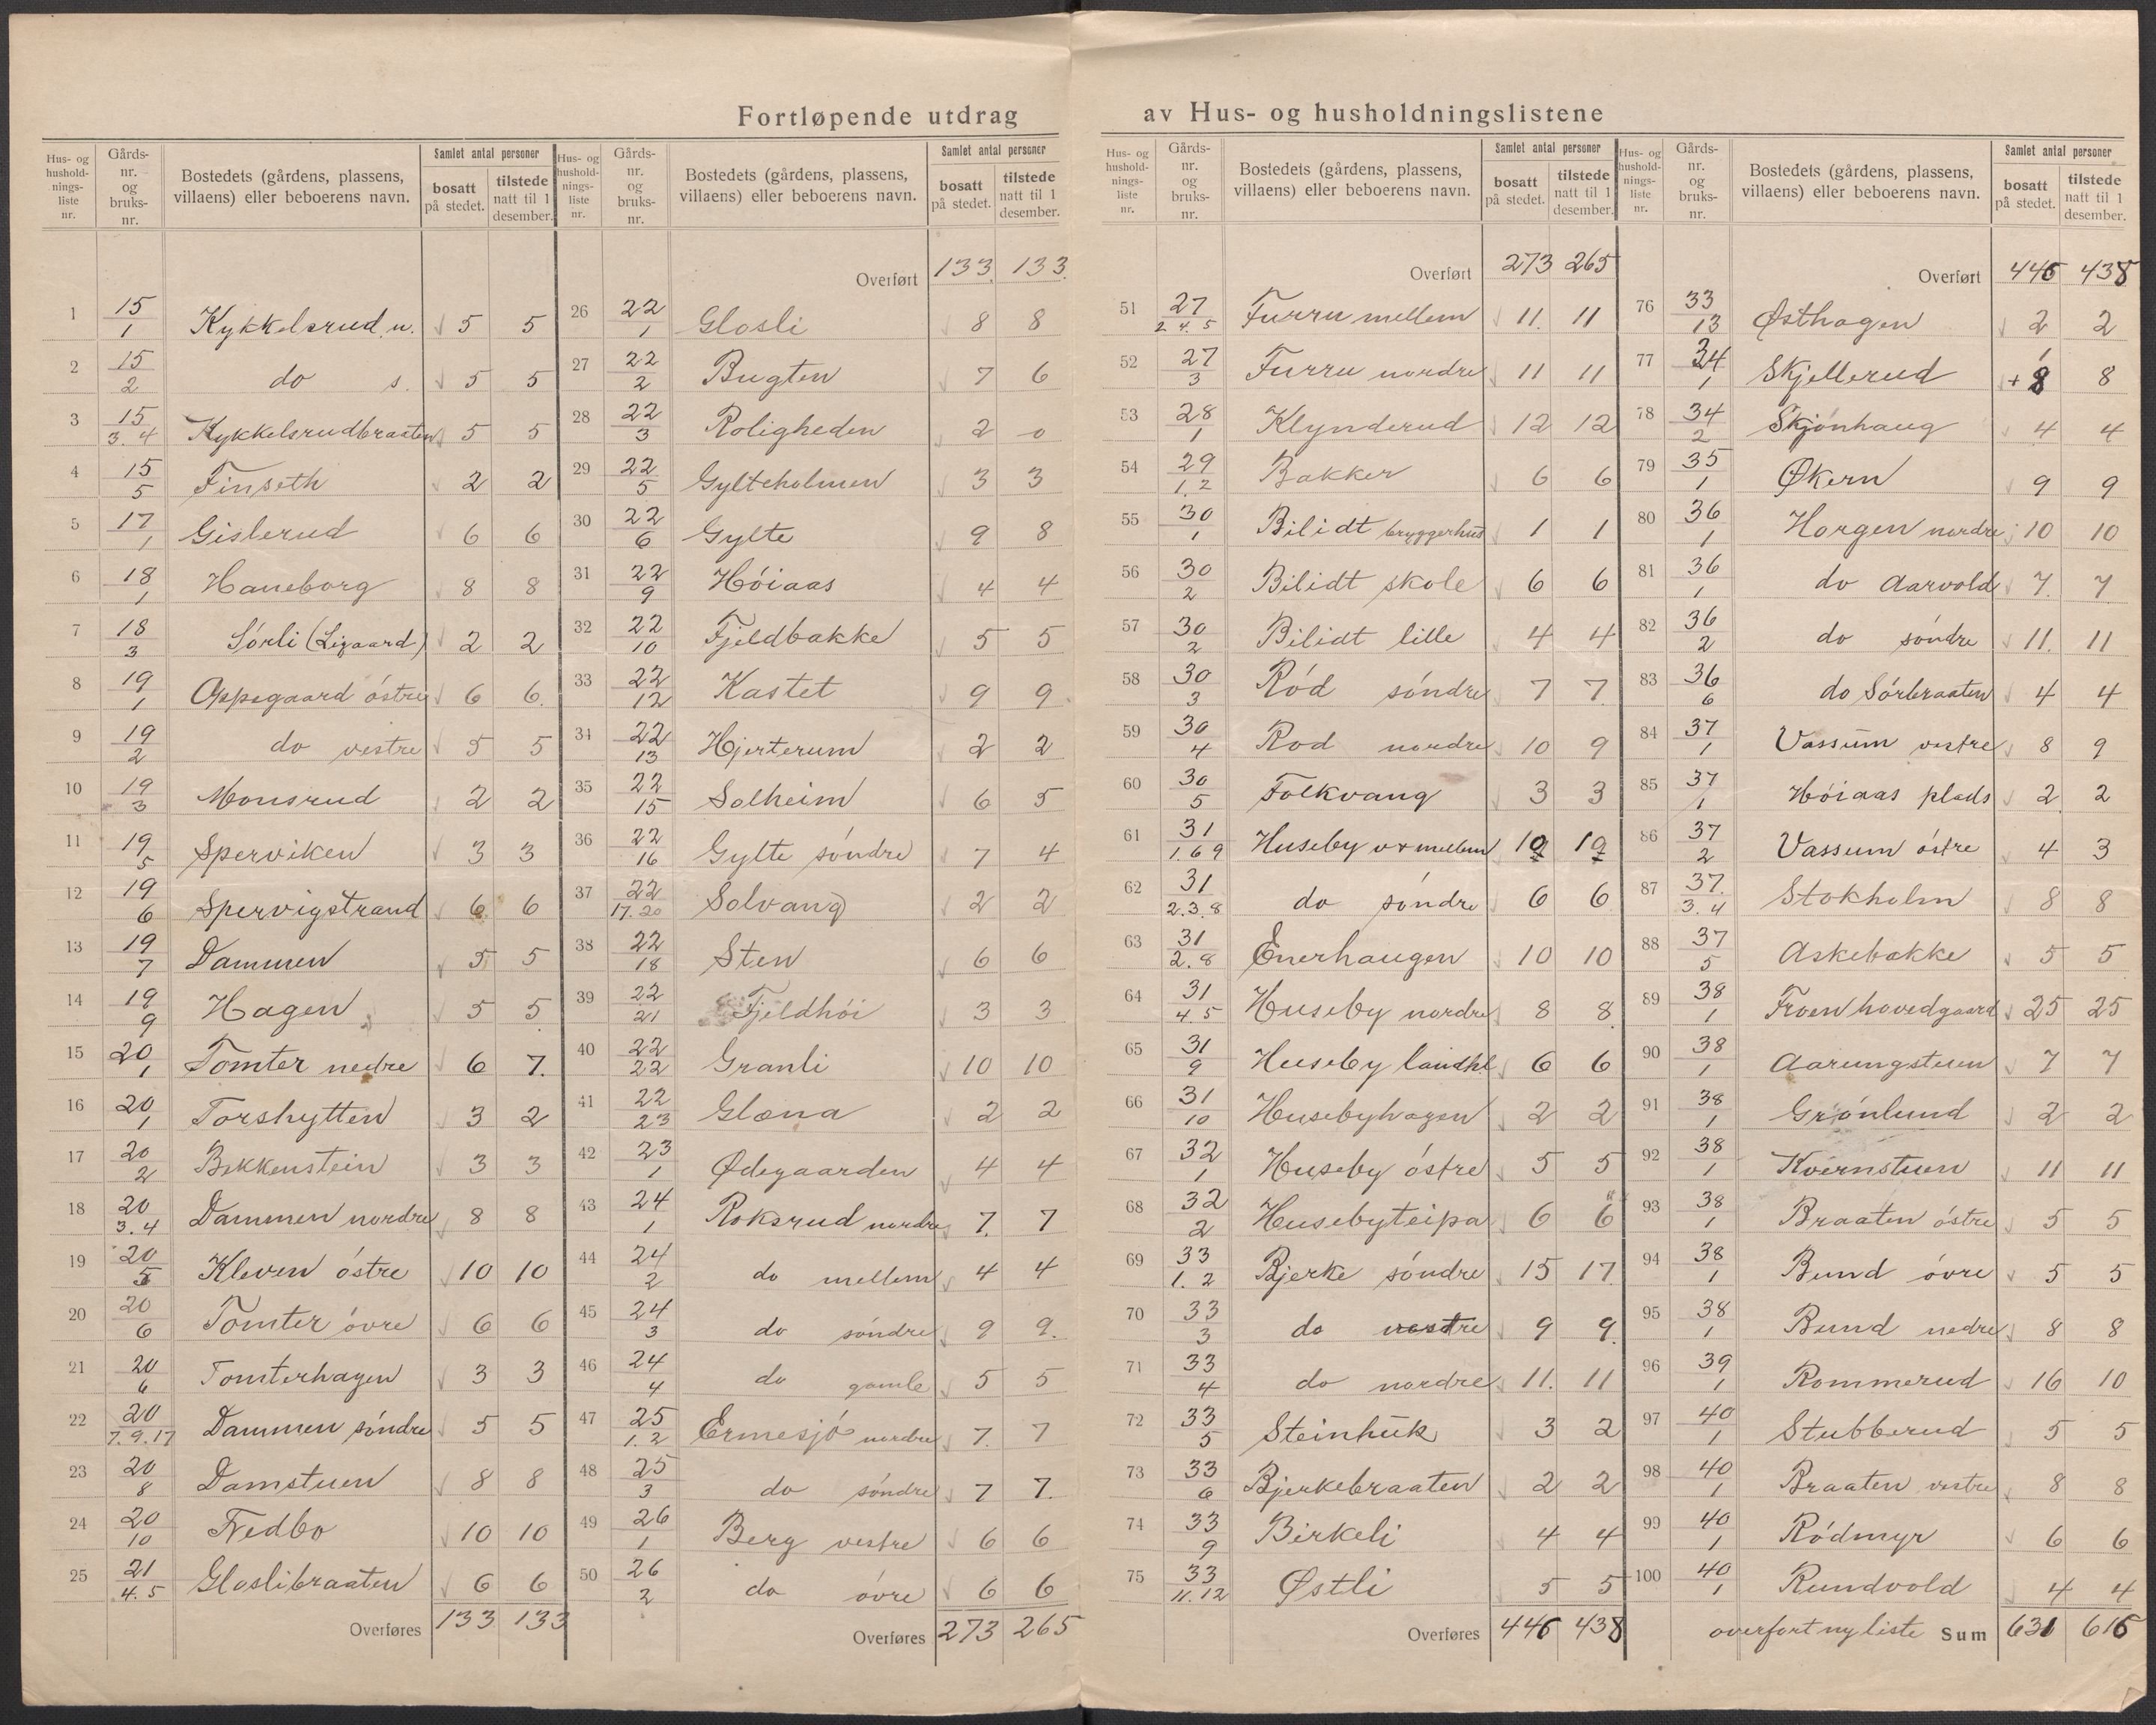 Fortløpende utdrag av Hus- og husholdningslistene
Hus- og hushold-nings-liste nr. Gårds-nr. og bruks-nr. Bostedets (gårdens, plassens, villaens) eller beboerens navn. Samlet antal personer bosatt på stedet. tilstede natt til 1 desember.
1 15/1 Kykkelsrud n. 5 5
2 15/2 do s. 5 5
3 15/3.4 Kykkelsrudbraaten 5 5
4 15/5 Finseth 2 2
5 17/1 Gislerud 6 6
6 18/1 Haneborg 8 8
7 18/3 Sórli (Ligaard) 2 2
8 19/1 Oppegaard óstre 6 6
9 19/2 do vestre 5 5
10 19/3 Monsrud 2 2
11 19/5 Sperviken 3 3
12 19/6 Spervigstrand 6 6
13 19/7 Dammen 5 5
14 19/9 Hagen 5 5
15 20/1 Tomter nedre 6 7.
16 20/1 Torshytten 3 2
17 20/2 Bekkenstein 3 3
18 20/3.4 Dammen nordre 8 8
19 20/5 Kleven óstre 10 10
20 20/6 Tomter óvre 6 6
21 20/6 Tomterhagen 3 3
22 20/7.9.17 Dammen sóndre 5 5
23 20/8 Damstuen 8 8
24 20/10 Nedbo 10 10
25 21/4.5 Gloslibraaten 6 6
Overføres 133 133
Hus- og hushold-nings-liste nr. Gårds-nr. og bruks-nr. Bostedets (gårdens, plassens, villaens) eller beboerens navn. Samlet antal personer bosatt på stedet. tilstede natt til 1 desember.
Overført 133 133
26 22/1 Glosli 8 8
27 22/2 Bugten 7 6
28 22/3 Roligheden 2 0
29 22/5 Gylteholmen 3 3
30 22/6 Gylte 9 8
31 22/9 Hóiaas 4 4
32 22/10 Fjeldbakke 5 5
33 22/12 Kastet 9 9
34 22/13 Hjerterum 2 2
35 22/15 Solheim 6 5
36 22/16 Gylte sóndre 7 4
37 22/17.20 Solvang 2 2
38 22/18 Sten 6 6
39 22/21 Fjeldhói 3 3
40 22/22 Granli 10 10
41 22/23 Glæna 2 2
42 23/1 Ødegaarden 4 4
43 24/1 Roksrud nordre 7. 7
44 24/2 do mellem 4 4
45 24/3 do sóndre 9 9.
46 24/4 do gamle 5 5
47 25/1.2 Ermesjó nordre 7. 7
48 25/3 do sóndre 7 7.
49 26/1 Berg vestre 6 6
50 26/2 do óvre 6 6
Overføres 273 265
Hus- og hushold-nings-liste nr. Gårds-nr. og bruks-nr. Bostedets (gårdens, plassens, villaens) eller beboerens navn. Samlet antal personer bosatt på stedet. tilstede natt til 1 desember.
Overført 273 265
51 27/2.4.5 Furru mellem 11. 11
52 27/3 Furru nordre 11 11
53 28/1 Klynderud 12 12
54 29/1.2 Bakker 6 6
55 30/1 Bilidt bryggerhus 1 1
56 30/2 Bilidt skole 6 6
57 30/2 Bilidt lille 4 4
58 30/3 Ród sóndre 7 7
59 30/4 Rod nordre 10 9
60 30/5 Folkvang 3 3
61 31/1.6 9 Huseby v + mellem
62 31/2.3.8 do sóndre 6 6
63 31/2.8 Enerhaugen 10 10
64 31/4.5 Huseby nordre 8 8
65 31/9 Huseby landhl 6 6
66 31/10 Husebyhagen 2 2
67 32/1 Huseby óstre 5 5
68 32/2 Husebyteipa 6 6
69 33/1.2 Bjerke sóndre 15 17
70 33/3 do vestre 9 9
71 33/4 do nordre 11. 11
72 33/5 Steinhuk 3 2
73 33/6 Bjerkebraaten 2 2
74 33/9 Birkeli 4 4
75 33/11.12 Østli 5 5
Overføres 446 438
Hus- og hushold-nings-liste nr. Gårds-nr. og bruks-nr. Bostedets (gårdens, plassens, villaens) eller beboerens navn. Samlet antal personer bosatt på stedet. tilstede natt til 1 desember.
Overført 446 438
76 33/13 Østhagen 2 2
77 34/1 Skjellerud + 8 8
78 34/2 Skjónhaug 4 4
79 35/1 Økern 9 9
80 36/1 Horgen nordre 10 10
81 36/1 do Aarvold 7. 7
82 36/2 do sóndre 11. 11
83 36/6 do Sórbraaten 4 4
84 37/1 Vassum vestre 8 9
85 37/1 Hóiaas plads 2 2
86 37/2 Vassum óstre 4 3
87 37./3.4 Stokholm 8 8
88 37/5 Askebakke 5 5
89 38/1 Froen hovedgaard 25 25
90 38/1 Aarungstuen 7 7
91 38/1 Grónlund 2 2
92 38/1 Kvernstuen 11 11
93 38/1 Braaten óstre 5 5
94 38/1 Bund óvre 5 5
95 38/1 Bund nedre 8 8
96 39/1 Rommerud 16 10
97 40/1 Stubberud 5 5
98 40/1 Braaten vestre 8 8
99 40/1 Ródmyr 6 6
100 40/1 Rundvold 4 4
overfort ny liste Sum 631 616